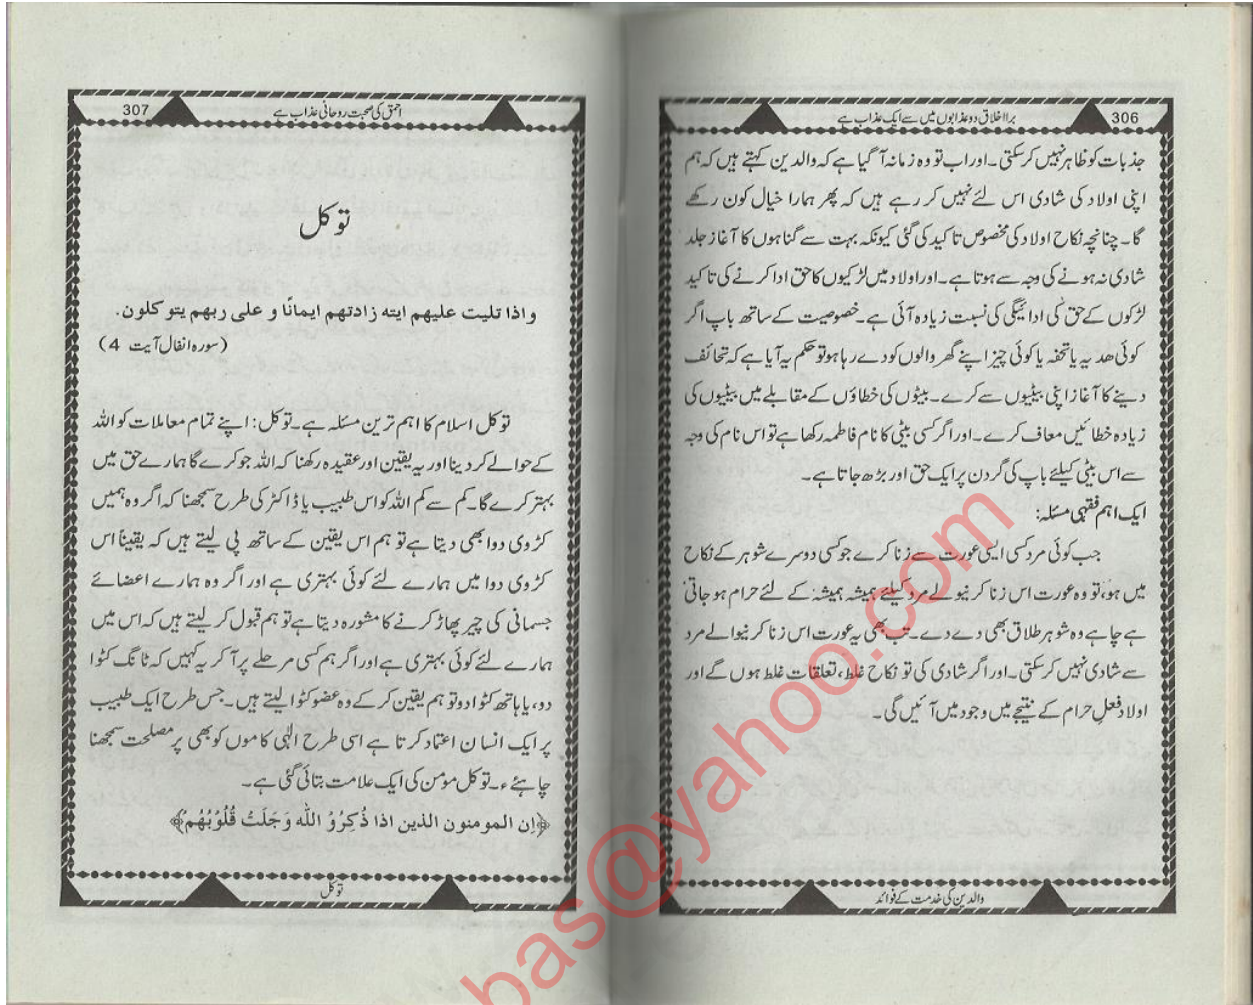 306
برا اخلاق دو عذابوں میں سے ایک عذاب ہے
جذبات کو ظاہر نہیں کر سکتی۔ اور اب تو وہ زمانہ آ گیا ہے کہ والدین کہتے ہیں کہ ہم
اپنی اولاد کی شادی اس لئے نہیں کر رہے ہیں کہ پھر ہمارا خیال کون رکھے
گا۔ چنانچہ نکاح اولاد کی مخصوص تاکید کی گئی کیونکہ بہت سے گناہوں کا آغاز جلد
شادی نہ ہونے کی وجہ سے ہوتا ہے۔ اور اولاد میں لڑکیوں کا حق ادا کرنے کی تاکید
لڑکوں کے حق کی ادائیگی کی نسبت زیادہ آئی ہے۔ خصوصیت کے ساتھ باپ اگر
کوئی ھدیہ یا تحفہ یا کوئی چیز اپنے گھر والوں کو دے رہا ہو تو حکم یہ آیا ہے کہ تحائف
دینے کا آغاز اپنی بیٹیوں سے کرے۔ بیٹوں کی خطاؤں کے مقابلے میں بیٹیوں کی
زیادہ خطائیں معاف کرے۔ اور اگر کسی بیٹی کا نام فاطمہ رکھا ہے تو اس نام کی وجہ
سے اس بیٹی کیلئے باپ کی گردن پر ایک حق اور بڑھ جاتا ہے۔
ایک اہم فقہی مسئلہ:
جب کوئی مرد کسی ایسی عورت سے زنا کرے جو کسی دوسرے شوہر کے نکاح
میں ہو، تو وہ عورت اس زنا کرنیوالے مرد کیلئے ہمیشہ ہمیشہ کے لئے حرام ہو جاتی
ہے چاہے وہ شوہر طلاق بھی دے دے۔ تب بھی یہ عورت اس زنا کرنیوالے مرد
سے شادی نہیں کر سکتی۔ اور اگر شادی کی تو نکاح غلط، تعلقات غلط ہوں گے اور
اولاد فعلِ حرام کے نتیجے میں وجود میں آئیں گی۔
والدین کی خدمت کے فوائد
احمق کی صحبت روحانی عذاب ہے
307
توکل
واذا تلیت علیهم ایته زادتهم ایمانًا و علی ربهم یتوکلون.
(سورہ انفال آیت 4)
توکل اسلام کا اہم ترین مسئلہ ہے۔ توکل: اپنے تمام معاملات کو اللہ
کے حوالے کر دینا اور یہ یقین اور عقیدہ رکھنا کہ اللہ جو کرے گا ہمارے حق میں
بہتر کرے گا۔ کم سے کم اللہ کو اس طبیب یا ڈاکٹر کی طرح سمجھنا کہ اگر وہ ہمیں
کڑوی دوا بھی دیتا ہے تو ہم اس یقین کے ساتھ پی لیتے ہیں کہ یقیناً اس
کڑوی دوا میں ہمارے لئے کوئی بہتری ہے اور اگر وہ ہمارے اعضائے
جسمانی کی چیر پھاڑ کرنے کا مشورہ دیتا ہے تو ہم قبول کر لیتے ہیں کہ اس میں
ہمارے لئے کوئی بہتری ہے اور اگر ہم کسی مرحلے پر آ کر یہ کہیں کہ ٹانگ کٹوا
دو، یا ہاتھ کٹوا دو تو ہم یقین کر کے وہ عضو کٹوا لیتے ہیں۔ جس طرح ایک طبیب
پر ایک انسان اعتماد کرتا ہے اسی طرح الٰہی کاموں کو بھی پر مصلحت سمجھنا
چاہئے۔ توکل مومن کی ایک علامت بتائی گئی ہے۔
﴿اِن المومنون الذین اذا ذُکِرُوُ الله وَجَلَتُ قُلُوُبُهُمُ﴾
توکل
bas@yahoo.com